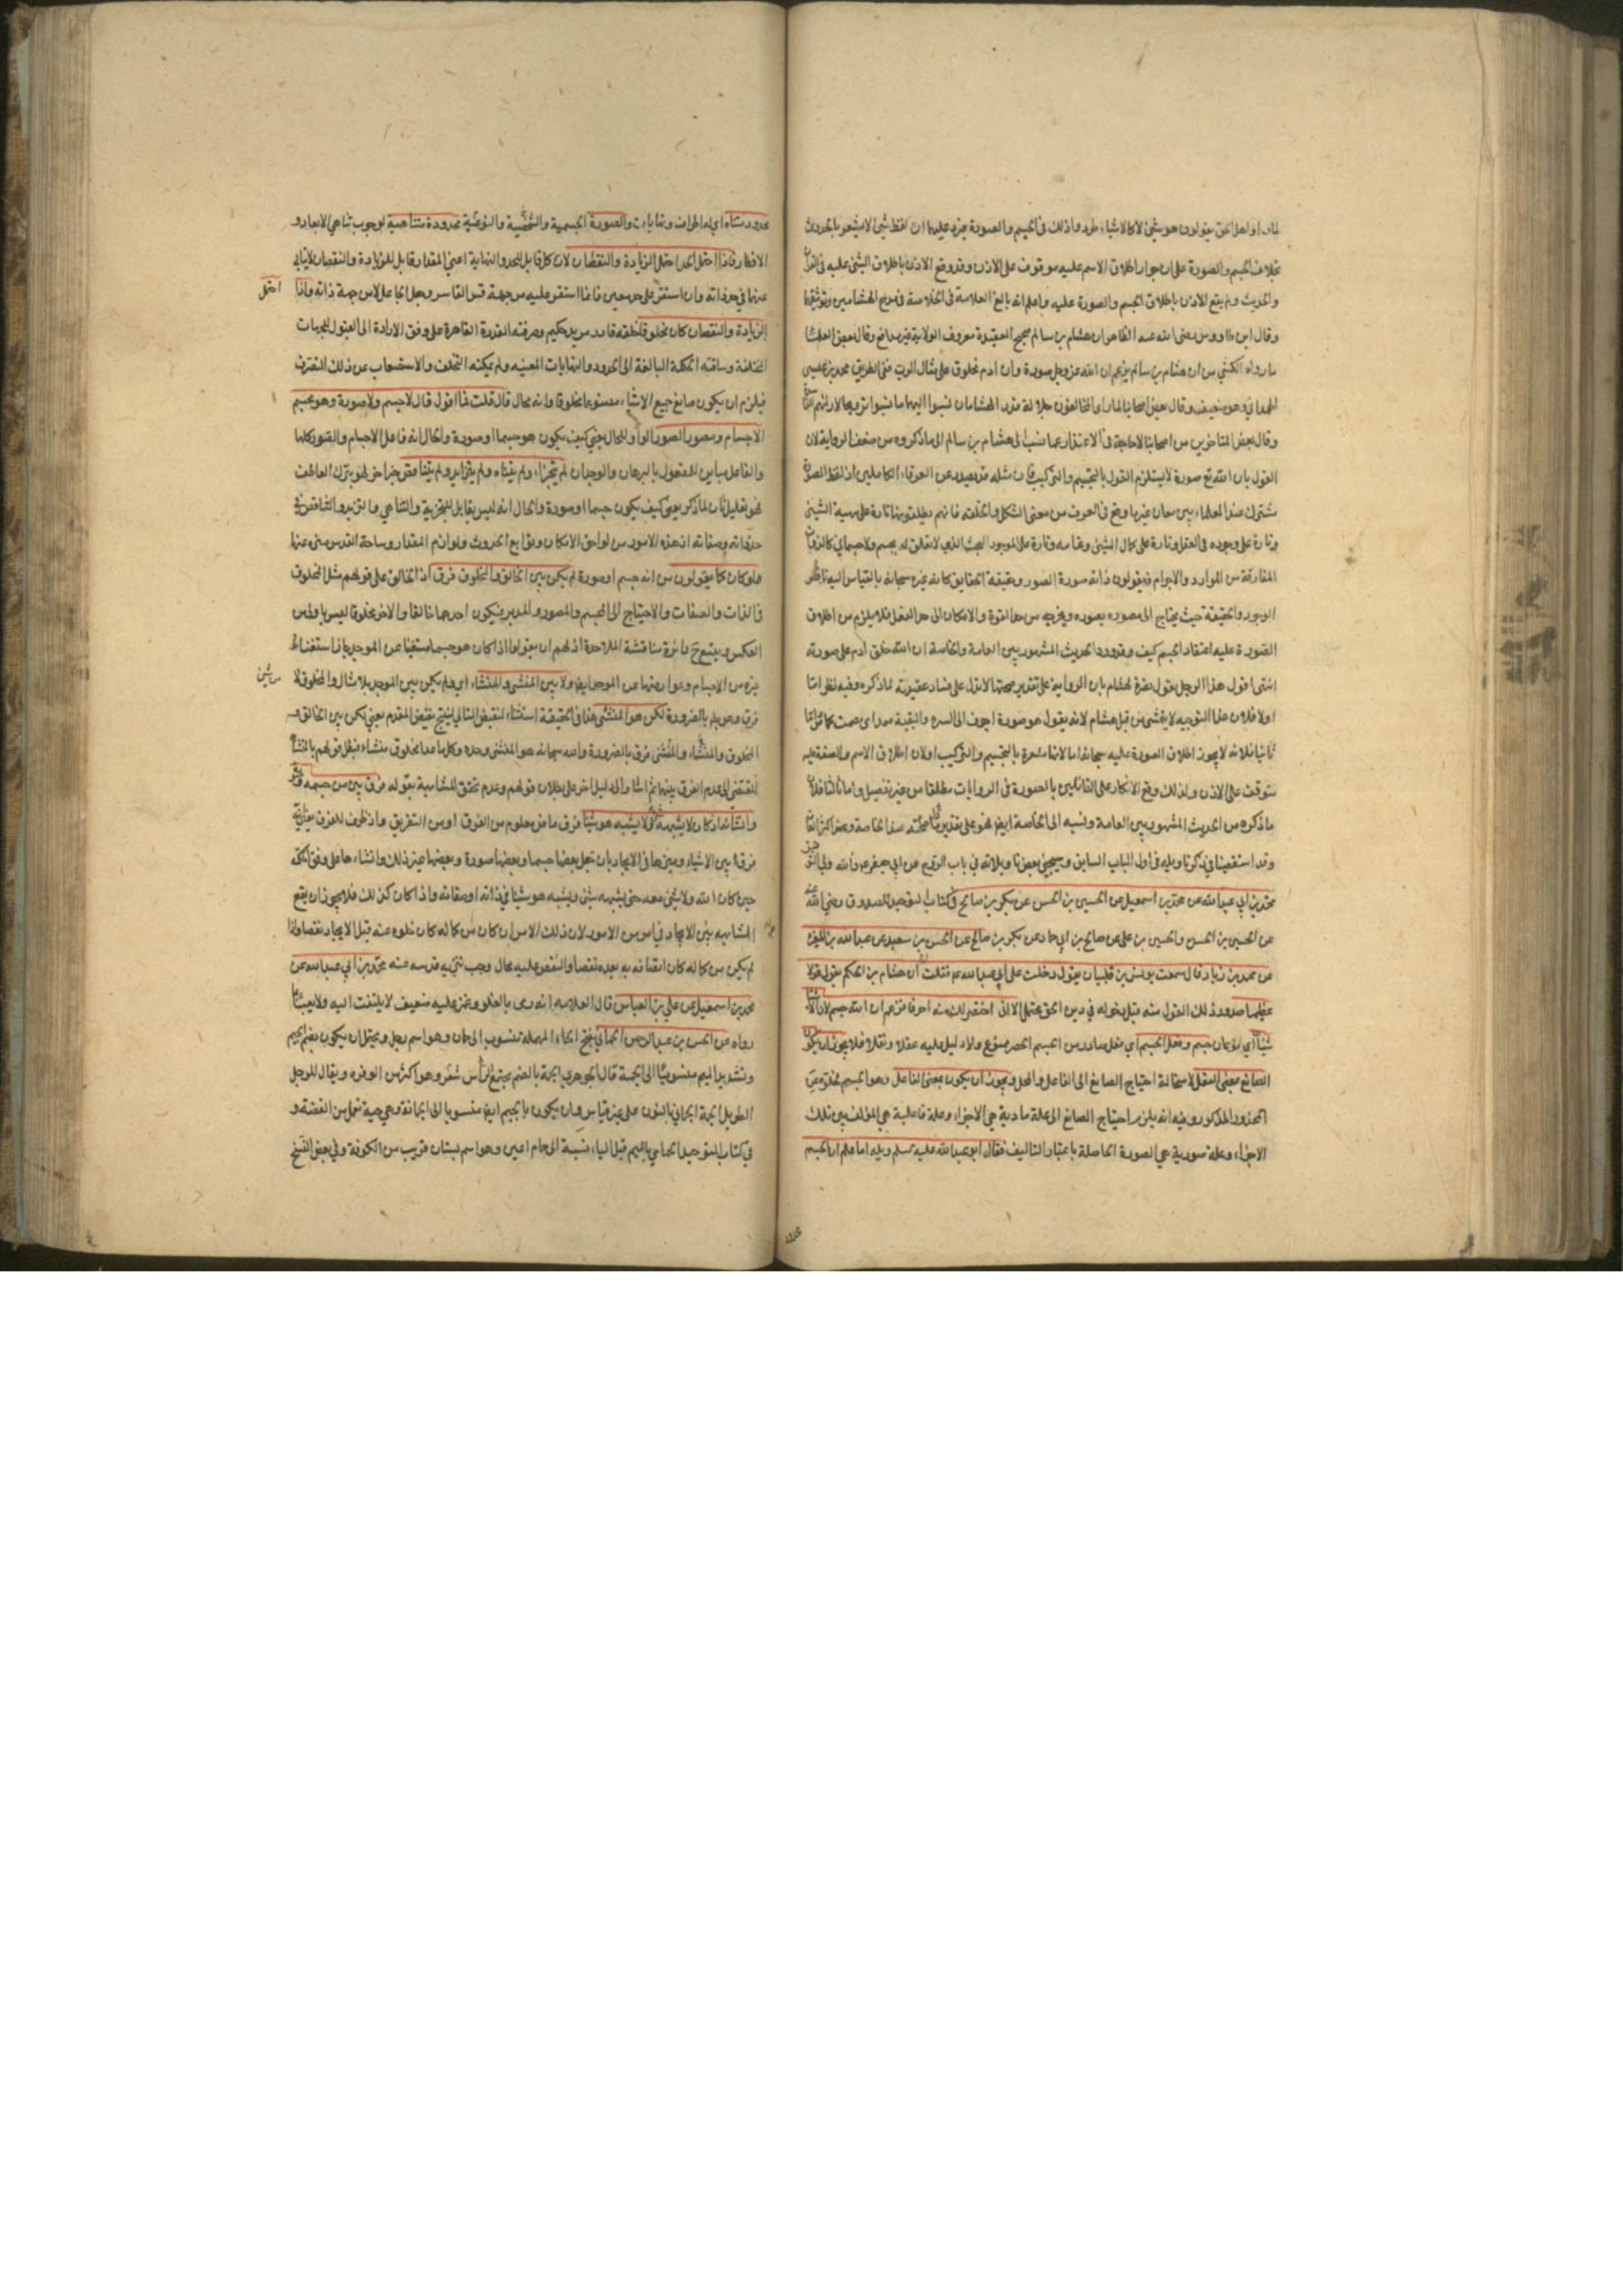 لما رأوا اهل الحق يقولون هو شيء لا كالاشياء طردوا ذلك في الجسم والصورة فيرد عليهما ان لفظ شيء لا يشعر بالحدوث
بخلاف الجسم والصورة على ان جواز اطلاق الاسم عليه موقوف على الاذن وقد وقع الاذن باطلاق الشيء عليه في القرآن
والحديث ولم يقع الاذن باطلاق الجسم والصورة عليه واعلم انه بالغ العلامة في الخلاصة في مدح الهشامين وتوثيقهما
وقال ابن طاووس رضي الله عنه الظاهر ان هشام بن سالم صحيح العقيدة معروف الولاية غير مدافع وقال بعض العلماء
ما رواه الكشي من ان هشام بن سالم يزعم ان الله عز وجل صورة وان ادم مخلوق على مثال الرب ففي الطريق محمد بن عيسى
الهمداني وهو ضعيف وقال بعض اصحابنا لما رأوا المخالفون جلالة قدر الهشامان نسبوا اليهما ما نسبوا ترويجا لارائهم
وقال بعض المتاخرين من اصحابنا لا حاجة في الاعتذار عما نسب الى هشام بن سالم الى ما ذكروه من ضعف الرواية لان
القول بان الله تع صورة لا يستلزم القول بالتجسيم والتركيب فان مثله قد يصدر عن العرفاء الكاملين اذ لفظ الصورة
مشترك عند العلماء بين معان غير ما وقع في العرف من معنى الشكل والخلقة فانهم يطلقونها تارة على مهية الشيء
وتارة على وجوده في العقل وتارة على كمال الشيء وتمامه وتارة على الموجود البحت الذي لا تعلق له بجسم ولا جسماني كالذوات
المفارقة من المواد والاجرام فيقولون ذاته صورة الصور وحقيقة الحقايق كانه غيره سبحانه بالقياس اليه ناقص
الوجود والحقيقة حيث يحتاج الى مصوره بصوره ويخرجه من حد القوة والامكان الى حد الفعل فلا يلزم من اطلاق
الصورة عليه اعتقاد الجسم كيف وقد ورد الحديث المشهور بين العامة والخاصة ان الله خلق ادم على صورته
انتهى اقول هذا الرجل يقول نصرة لهشام بان الرواية على تقدير صحتها لا تدل على فساد عقيدته لما ذكره وفيه نظر اما
اولا فلان هذا التوجيه لا يتمشى من قبل هشام لانه يقول هو صورة اجوف الى السرة والبقية صمد اي مصمت كما مر واما
ثانيا فلانه لا يجوز اطلاق الصورة عليه سبحانه اما لانها مشعرة بالتجسيم والتركيب او لان اطلاق الاسم والصفة عليه
متوقف على الاذن ولذلك وقع الانكار على القائلين بالصورة في الروايات مطلقا من غير تفصيل واما ثالثا فلان
ما ذكره من الحديث المشهور بين العامة ونسبه الى الخاصة ايض فهو على تقدير صحته
وقد استقصينا في ذكر تاويله في اول الباب السابق وسيجيء بعض تاويلاته في باب الروح عن ابي جعفر ع والله ولي التوفيق
محمد بن ابي عبد الله عن محمد بن اسمعيل عن الحسين بن الحسن عن بكر بن صالح في كتاب التوحيد للصدوق رضي الله عنه
عن الحسين بن الحسن والحسين بن علي عن صالح بن ابي حماد عن بكر بن صالح عن الحسن بن سعيد عن عبد الله بن المغيرة
عن محمد بن زياد قال سمعت يونس بن ظبيان يقول دخلت على ابي عبد الله ع فقلت له ان هشام بن الحكم يقول قولا
عظيما صدور ذلك القول منه قبل دخوله في دين الحق محتمل الا اني اختصر لك منه احرفا فزعم ان الله جسم لان الاشياء
شيئان اي نوعان جسم وفعل الجسم اي فعل صادر من الجسم الحصر ممنوع ولا دليل عليه عقلا ونقلا فلا يجوز ان يكون
الصانع بمعنى الفعل لاستحالة احتياج الصانع الى الفاعل والمحل ويجوز ان يكون بمعنى الفاعل وهو الجسم لتنزهه عن
المحذور المذكور وفيه انه يلزم احتياج الصانع الى علة مادية هي الاجزاء وعلة فاعلية هي المؤلف بين تلك
الاجزاء وعلة صورية هي الصورة الحاصلة باعتبار التاليف فقال ابو عبد الله عليه السلم ويله اما علم ان الجسم
محدود متناه اي له اطراف ونهايات والصورة الجسمية والشخصية والنوعية محدودة متناهية لوجوب تناهي الابعاد و
الاقطار فاذا احتمل الحد احتمل الزيادة والنقصان لان كل قابل للحد والنهاية اعني المقدار قابل للزيادة والنقصان لا يتأبى
عنهما في حد ذاته وان استقر على حد معين فانما استقر عليه من جهة قسر القاسر وجعل الجاعل لا من جهة ذاته واذا احتمل
الزيادة والنقصان كان مخلوقا خلقه قادر مريد حكيم وصرفته القدرة القاهرة على وفق الارادة الى القبول للجهات
المختلفة وساقته الحكمة البالغة الى الحدود والنهايات المعينه ولم يمكنه التخلف والاستصعاب عن ذلك التصرف
فيلزم ان يكون صانع جميع الاشياء مصنوعا مخلوقا وانه محال قال قلت فما اقول قال لا جسم ولا صورة وهو مجسم
الاجسام ومصور الصور الواو للحال يعني كيف يكون هو جسما او صورة والحال انه فاعل الاجسام والصور كلها
والفاعل مباين للمفعول بالبرهان والوجدان لم يتجزء ولم يتناه ولم يتزايد ولم يتناقص
فهو تعليل ثان لما ذكر يعني كيف يكون جسما او صورة والحال انه ليس بقابل للتجزية والتناهي والتزيد والتناقص في
حد ذاته وصفاته اذ هذه الامور من لواحق الامكان وتوابع الحدوث ولوازم المقدار وساحة القدس منزه عنها
ولو كان كما يقولون من انه جسم او صورة لم يكن بين الخالق والمخلوق فرق اذ الخالق على قولهم مثل المخلوق
في الذات والصفات والاحتياج الى المجسم والمصور والمدبر فيكون احدهما خالقا والاخر مخلوقا ليس باولى من
العكس ويتسع ح دائرة مناقشة الملاحدة اذ لهم ان يقولوا اذا كان هو جسما مستغنيا عن الموجد جاز استغناء
غيره من الاجسام وعوارضها عن الموجد ايض ولا بين المنشئ والمنشاء اي ولم يكن بين الموجد بلا مثال والمخلوق لا من شيء
فرق وهو بط بالضرورة لكن هو المنشئ هذا في الحقيقة استثناء لنقيض التالي لينتج نقيض المقدم يعني لكن بين الخالق و
المخلوق والمنشاء والمنشئ فرق بالضرورة والله سبحانه هو المنشئ وحده وكل ما عداه مخلوق منشاء فبطل قولهم بالتشابه
المقتضي الى عدم الفرق بينهما ثم اشار الى دليل اخر على بطلان قولهم وعدم تحقق المشابهة بقوله فرق بين من جسمه وصوره
وانشاه اذ كان لا يشبهه شيء ولا يشبه هو شيئا فرق ماض معلوم من الفرق او من التفريق واذ ظرف للفرق يعني انه
فرق بين الاشياء وميزها في الايجاد بان جعل بعضها جسما وبعضها صورة وبعضها غير ذلك وانشاءها على وفق الحكمة
حين كان الله ولا شيء معه حتى يشبهه شيء ويشبه هو شيئا في ذاته او صفاته واذا كان كذلك فلا يجوز ان يقع
المشابهه بعد الايجاد في امر من الامور لان ذلك الامر ان كان من كماله كان خلوه عنه قبل الايجاد نقصا وان
لم يكن من كماله كان اتصافه به بعده نقصا والنقص عليه محال وجب تنزيه قدسه عنه محمد بن ابي عبد الله عن
محمد بن اسمعيل عن علي بن العباس قال العلامه انه رمى بالغلو وغمز عليه ضعيف لا يلتفت اليه ولا يعبأ بما
رواه عن الحسن بن عبد الرحمن الحماني بفتح الحاء المهملة منسوب الى حمان وهو اسم رجل ويحتمل ان يكون بضم الجيم
وتشديد الميم منسوبا الى الجمة قال الجوهري الجمة بالضم مجتمع الرأس شعره وهو اكثر من الوفره ويقال للرجل
الطويل الجمة الجماني بالنون على غير قياس وان يكون بالجيم ايض منسوبا الى الجمانة وهي حبة تعمل من الفضة و
في كتاب التوحيد الحمامي بالميم قبل الياء نسبة الى حمام اعين وهو اسم بستان قريب من الكوفة وفي بعض النسخ